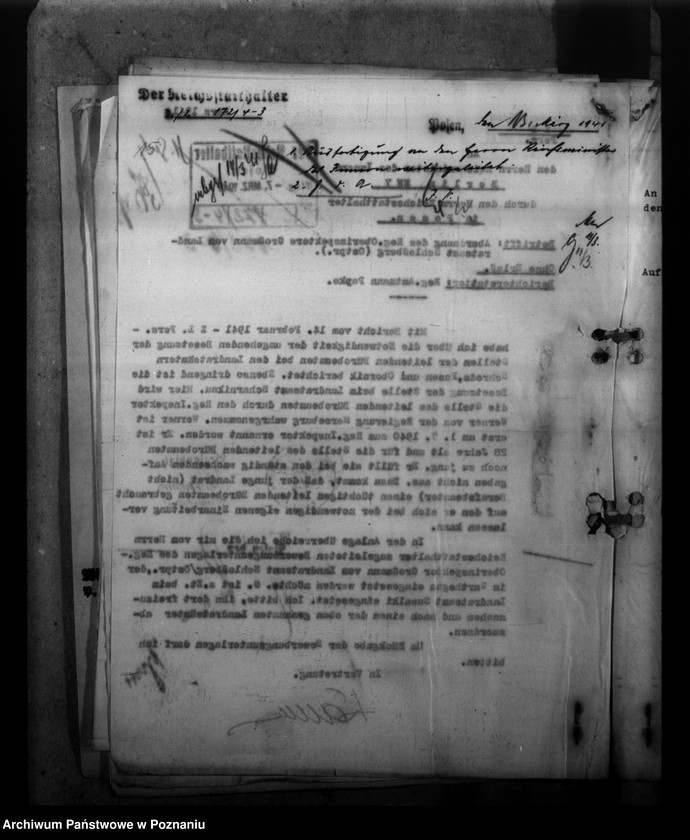 Der Reichsstatthalter
172/4-3
Posen, den 1941
1. Ausfertigung an den Herrn Reichsminister
den Herrn des Innern
Berlin NW 7
durch den Herrn Reichsstatthalter
in Posen.
Betrifft: Abordnung des Reg.Oberinspektors Großmann vom Land-
ratsamt Schloßberg (Ostpr.).
Ohne Erlaß.
Berichterstatter: Reg.Amtmann Papke.
Mit Bericht vom 14. Februar 1941 - Z L Pers. -
habe ich über die Notwendigkeit der umgehenden Besetzung der
Stellen der leitenden Bürobeamten bei den Landratsämtern
Schroda, Posen und Obornik berichtet. Ebenso dringend ist die
Besetzung der Stelle beim Landratsamt Scharnikau. Hier wird
die Stelle des leitenden Bürobeamten durch den Reg.Inspektor
Werner von der Regierung Merseburg wahrgenommen. Werner ist
erst am 1. 7. 1940 zum Reg.Inspektor ernannt worden. Er ist
28 Jahre alt und für die Stelle des leitenden Bürobeamten
noch zu jung. Er füllt sie bei den ständig wachsenden Auf-
gaben nicht aus. Dazu kommt, daß der junge Landrat (nicht
Berufsbeamter) einen tüchtigen leitenden Bürobeamten gebraucht
auf den er sich bei der notwendigen eigenen Einarbeitung ver-
lassen kann.
In der Anlage überreiche ich die mir vom Herrn
Reichsstatthalter zugeleiteten Bewerbungsunterlagen des Reg.-
Oberinspektor Großmann vom Landratsamt Schloßberg/Ostpr., der
im Warthegau eingesetzt werden möchte. G. ist z.Zt. beim
Landratsamt Suwalki eingesetzt. Ich bitte, ihn dort freizu-
machen und nach einem der oben genannten Landratsämter ab-
zuordnen.
Um Rückgabe der Bewerbungsunterlagen darf ich
bitten.
In Vertretung.
An
den
Auf
Archiwum Państwowe w Poznaniu